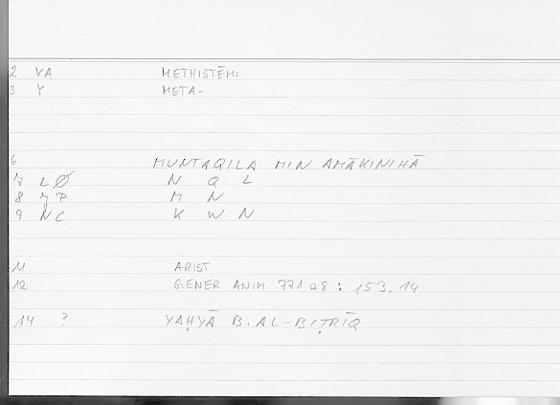 2 VA METHISTĒMI
3 Y META-
6 MUNTAQILA MIN AMĀKINIHĀ
7 LØ N Q L
8 YP M N
9 NC K W N
11 ARIST
12 GENER ANIM 771a8 : 153.14
14 ? YAḤYĀ B. AL-BIṬRĪQ